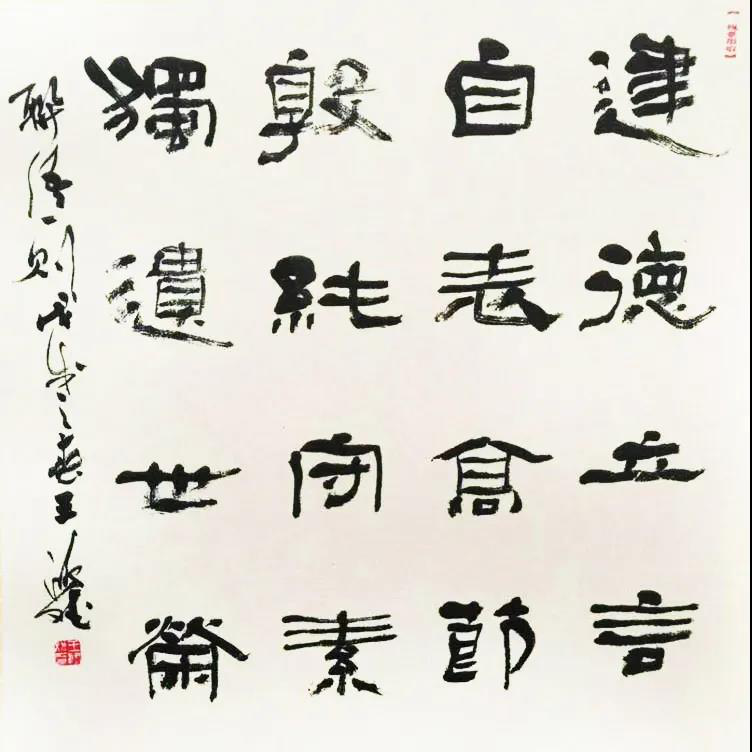 建德立言
自表高節
敦純守素
獨遺世榮
聯語一則戊戌之春王